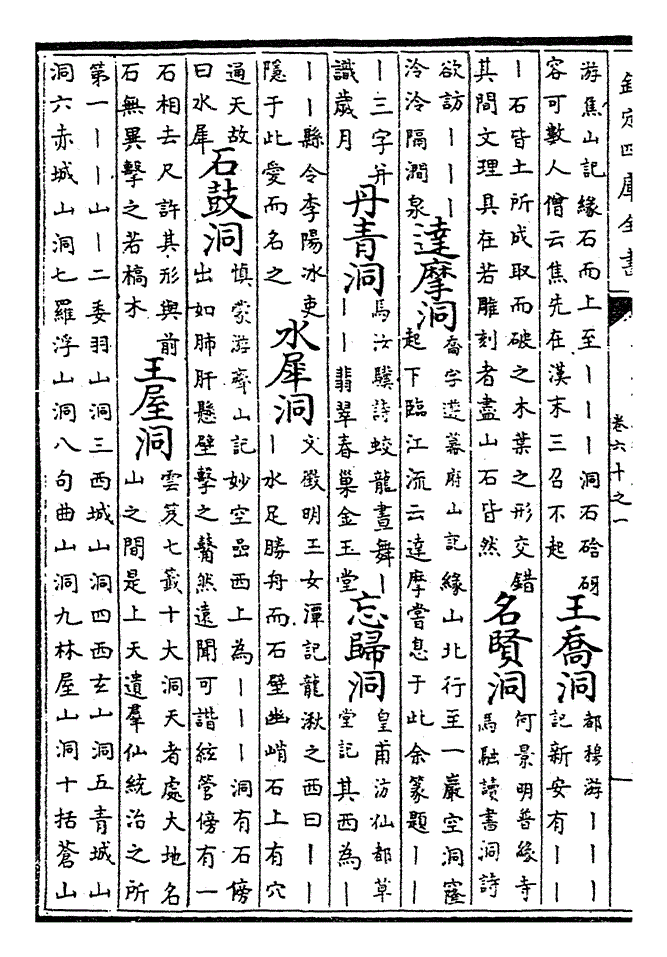 欽定四庫全書
卷六十之一
游焦山記緣石而上至丨丨丨洞石硌砑
容可數人僧云焦先在漢末三召不起
王喬洞
都穆游丨丨丨
記新安有丨丨
丨石皆土所成取而破之木葉之形交錯
其間文理具在若雕刻者盡山石皆然
名賢洞
何景明普緣寺
馬融讀書洞詩
欲訪丨丨丨
泠泠隔澗泉
達摩洞
喬宇遊幕府山記緣山北行至一巖空洞窿
起下臨江流云達摩嘗息于此余篆題丨丨
丨三字并
識歲月
丹青洞
馬汝驥詩蛟龍晝舞丨
丨丨翡翠春巢金玉堂
忘歸洞
皇甫汸仙都草
堂記其西為丨
丨丨縣令李陽冰吏
隱于此愛而名之
水犀洞
文徵明玉女潭記龍湫之西曰丨丨
丨水足勝舟而石壁幽峭石上有穴
通天故
曰水犀
石鼓洞
慎蒙游齊山記妙空喦西上為丨丨丨洞有石傍
出如肺肝懸壁擊之然遠聞可諧絃管傍有一
石相去尺許其形與前
石無異擊之若槁木
王屋洞
雲笈七籤十大洞天者處大地名
山之間是上天遺羣仙統治之所
第一丨丨山丨二委羽山洞三西城山洞四西玄山洞五青城山
洞六赤城山洞七羅浮山洞八句曲山洞九林屋山洞十括蒼山